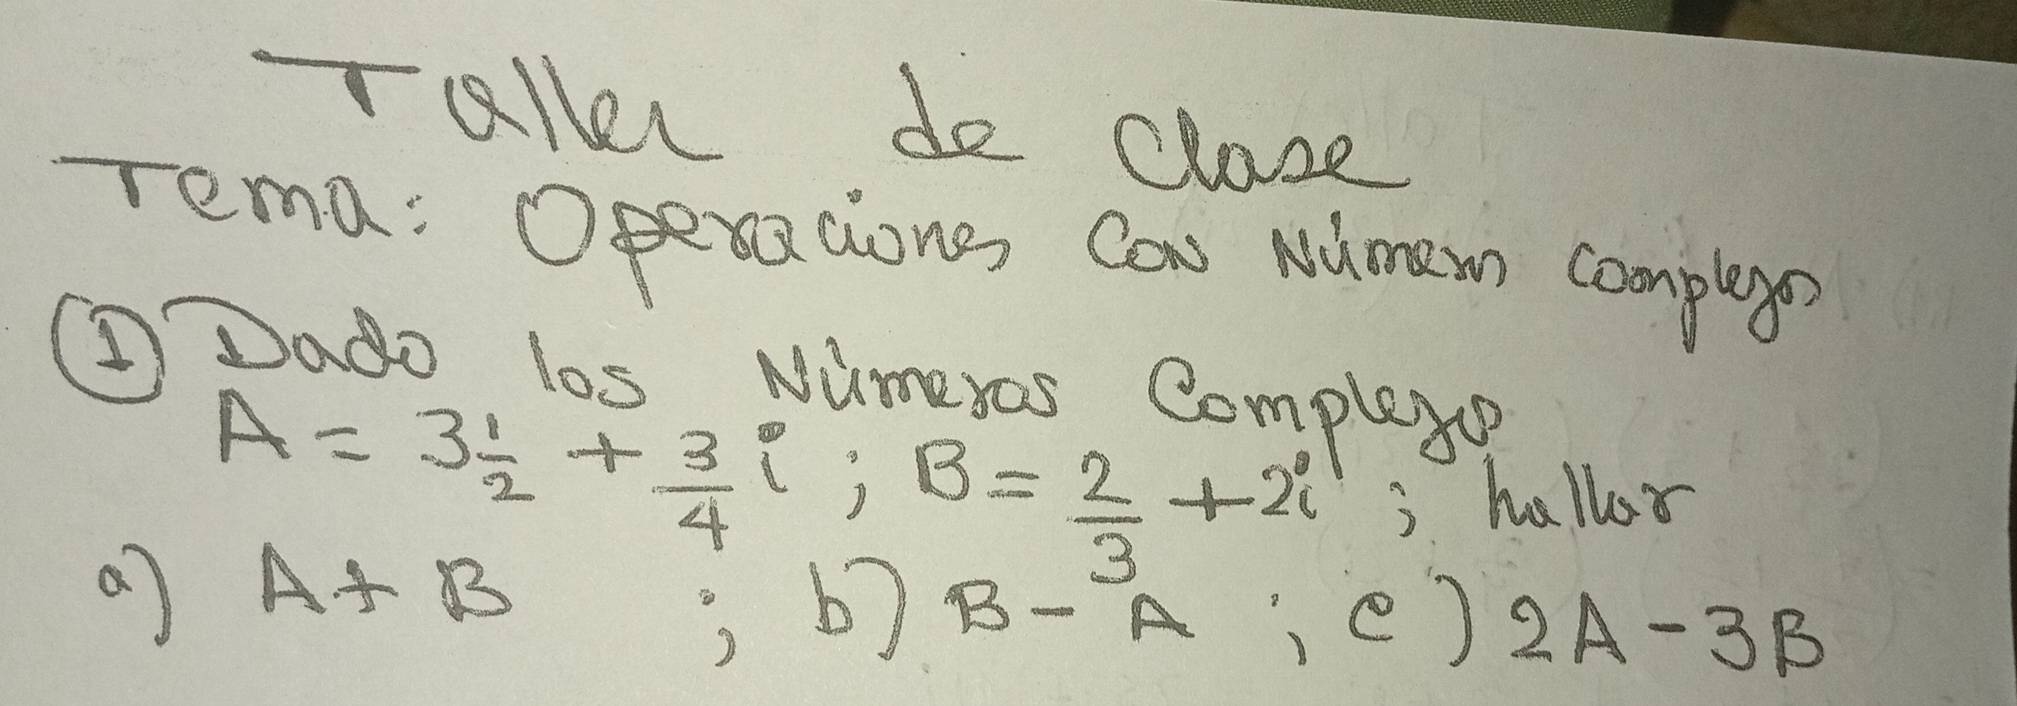 Taller de Clase
Tema: Operaciones Con Números Complejos
① Dado los Números Complejos
A = 3 1/2 + 3/4 i ; B = 2/3 + 2i ; hallar
a) A + B ; b) B - A ; c) 2A - 3B